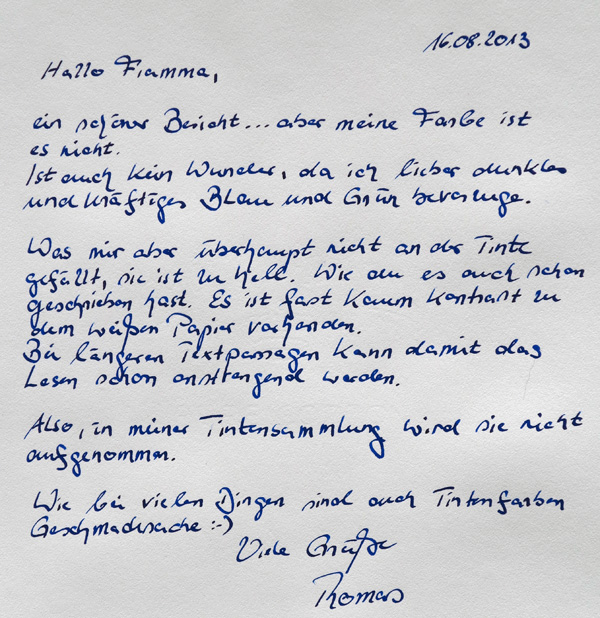 16.08.2013
Hallo Fiamma,
ein schöner Bericht... aber meine Farbe ist
es nicht.
Ist auch kein Wunder, da ich lieber dunkles
und kräftiges Blau und Grün bevorzuge.
Was mir aber überhaupt nicht an der Tinte
gefällt, sie ist zu hell. Wie du es auch schon
geschrieben hast. Es ist fast kaum Kontrast zu
dem weißen Papier vorhanden.
Bei längeren Textpassagen kann damit das
Lesen schon anstrengend werden.
Also, in meiner Tintensammlung wird sie nicht
aufgenommen.
Wie bei vielen Dingen sind auch Tintenfarben
Geschmackssache :-)
Viele Grüße
Thomas